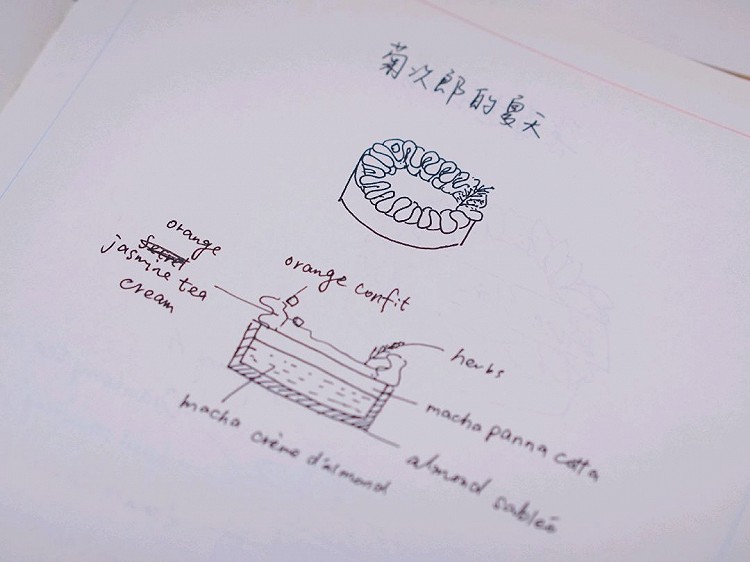 菊次郎的夏天
orange
jasmine tea
cream
orange confit
herbs
macha panna cotta
macha crème d'almond
almond sablés